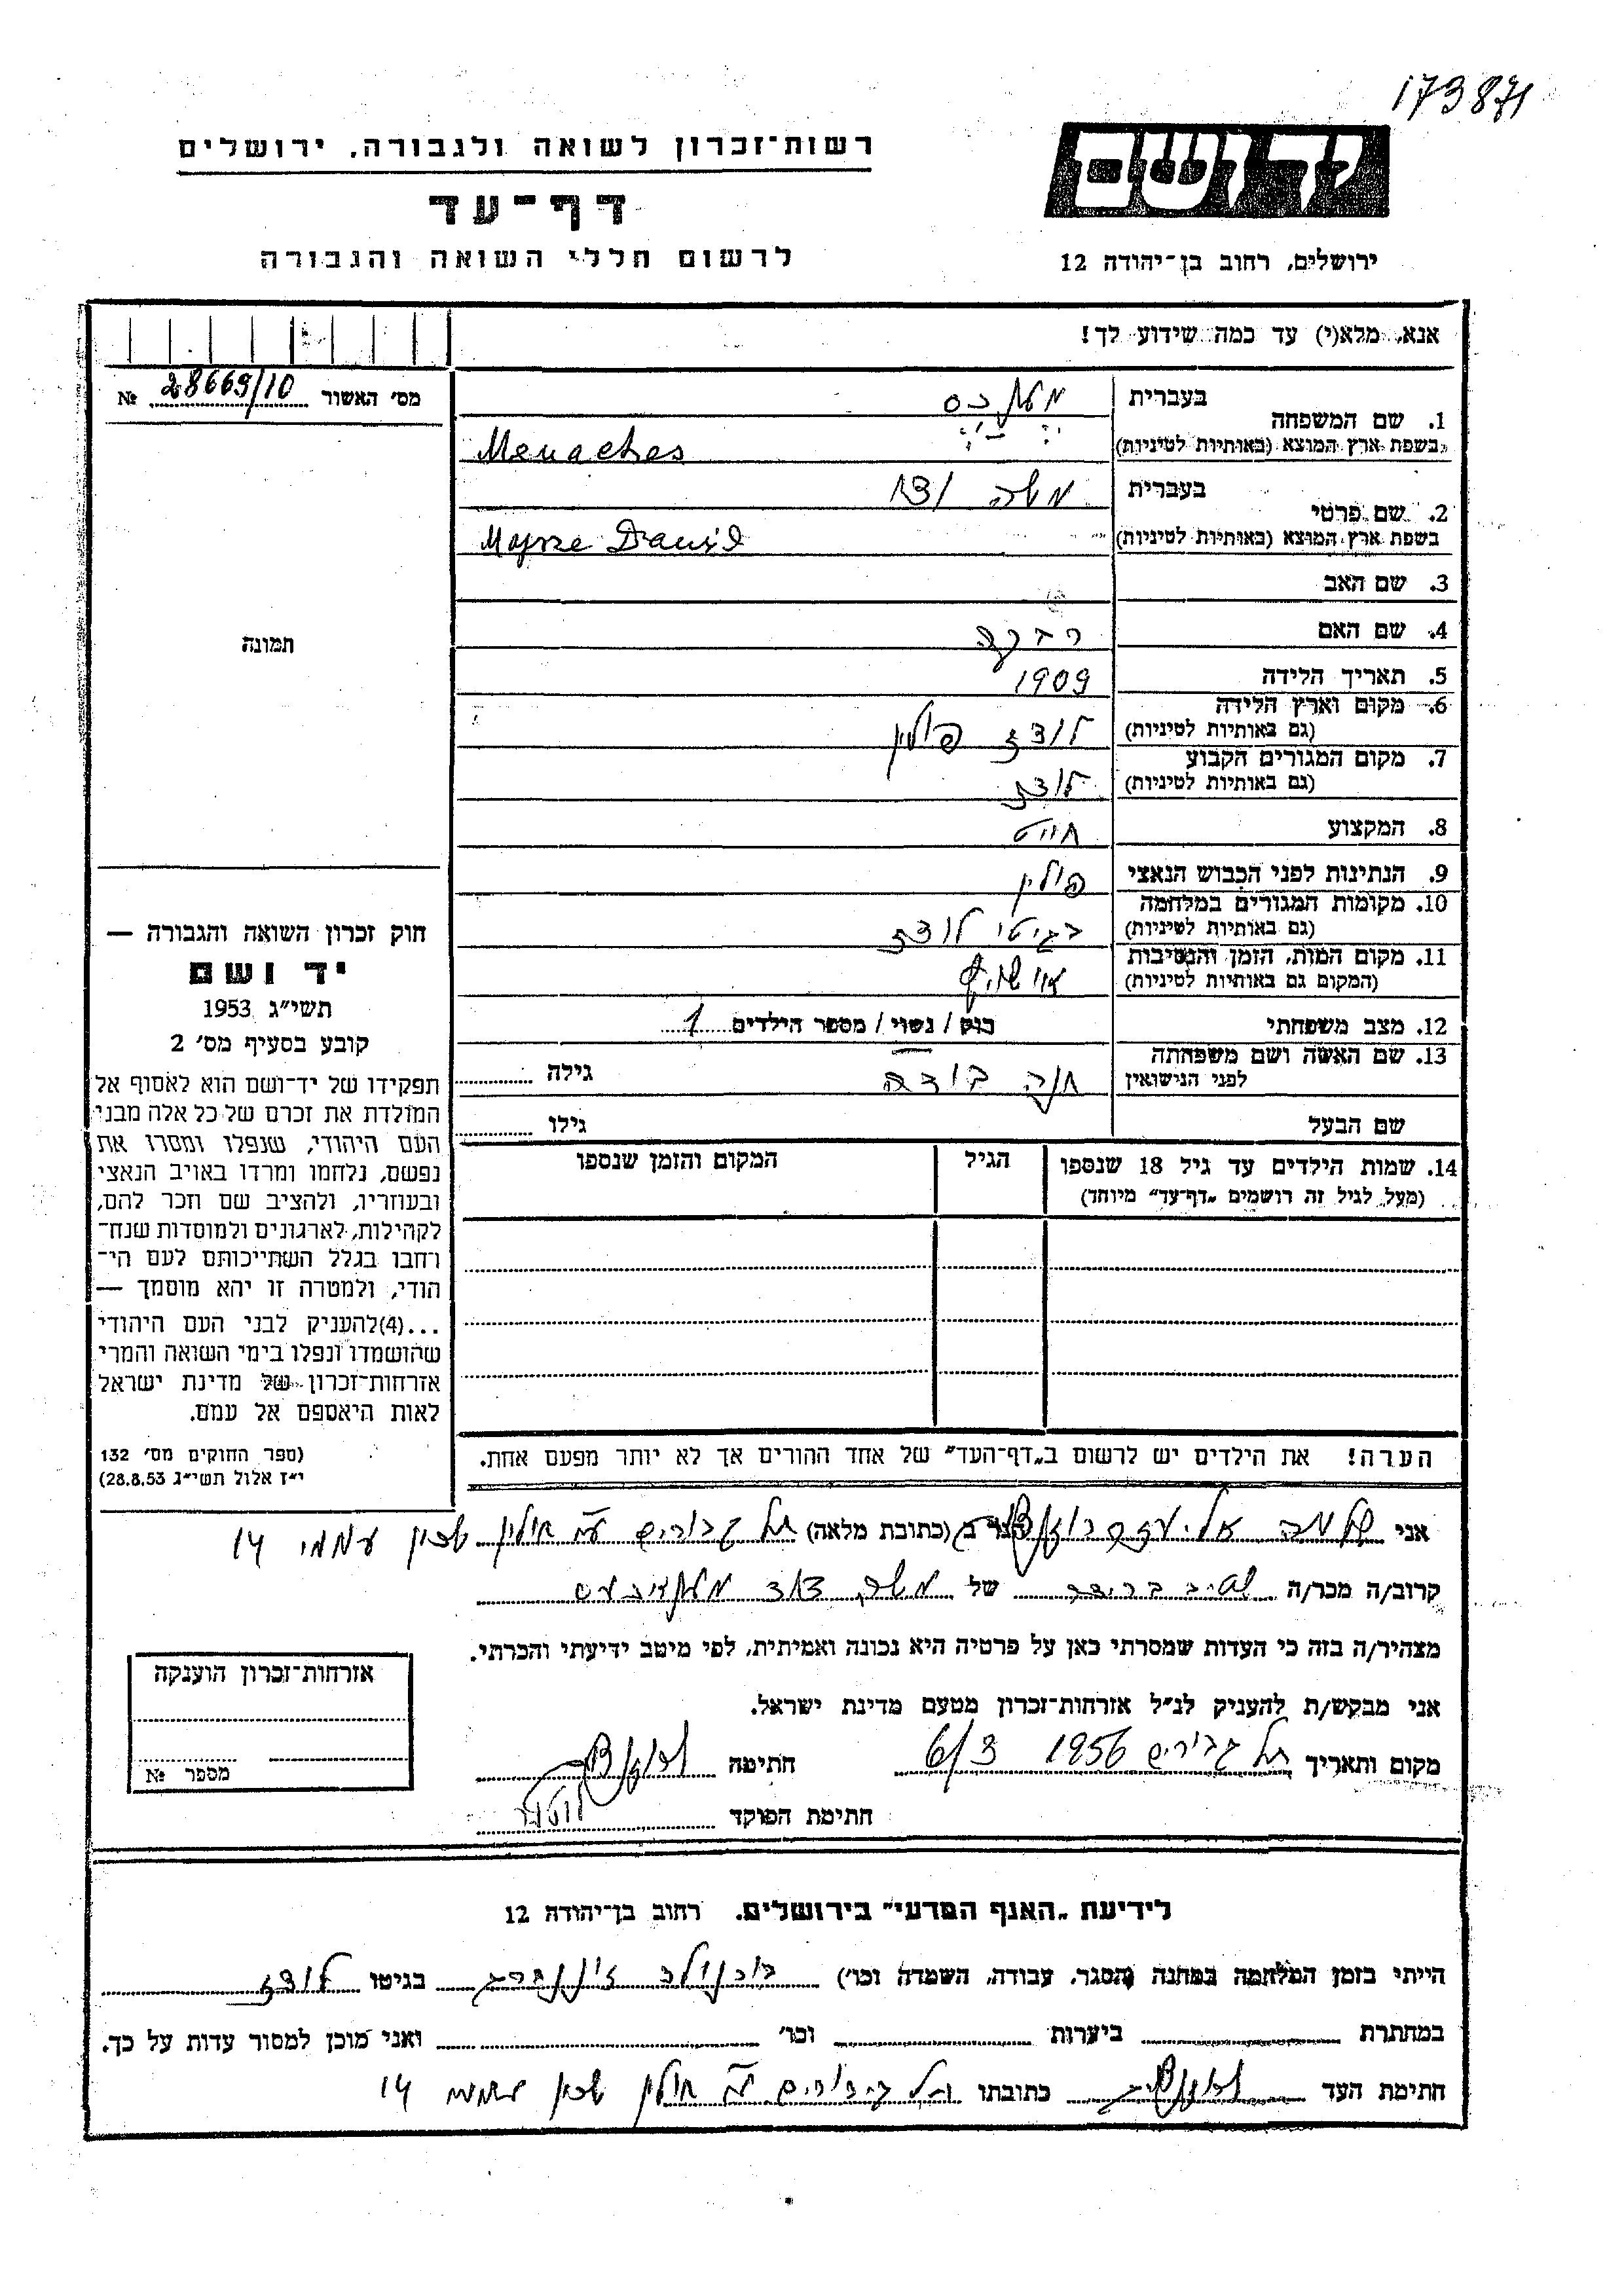 173871
יד ושם
רשות־זכרון לשואה ולגבורה, ירושלים
דף־עד
לרשום חללי השואה והגבורה
ירושלים, רחוב בן־יהודה 12
אנא, מלא(י) עד כמה שידוע לך!
מס׳ האשור 28669/10 №
תמונה
חוק זכרון השואה והגבורה —
יד ושם
תשי״ג 1953
קובע בסעיף מס׳ 2
תפקידו של יד־ושם הוא לאסוף אל
המולדת את זכרם של כל אלה מבני
העם היהודי, שנפלו ומסרו את
נפשם, נלחמו ומרדו באויב הנאצי
ובעוזריו, ולהציב שם וזכר להם,
לקהילות, לארגונים ולמוסדות שנח־
רחבו בגלל השתייכותם לעם הי־
הודי, ולמטרה זו יהא מוסמך —
...(4)להעניק לבני העם היהודי
שהושמדו ונפלו בימי השואה והמרי
אזרחות־זכרון של מדינת ישראל
לאות היאספם אל עמם.
(ספר החוקים מס׳ 132
י״ז אלול תשי״ג 28.8.53)
1. שם המשפחה בעברית
בשפת ארץ המוצא (באותיות לטיניות) Menaches
2. שם פרטי בעברית משה דוד
בשפת ארץ המוצא (באותיות לטיניות) Mojsze Dawid
3. שם האב
4. שם האם רבקה
5. תאריך הלידה 1909
6. מקום וארץ הלידה לודז פולין
(גם באותיות לטיניות)
7. מקום המגורים הקבוע לודז
(גם באותיות לטיניות)
8. המקצוע חייט
9. הנתינות לפני הכבוש הנאצי פולין
10. מקומות המגורים במלחמה בגיטו לודז
(גם באותיות לטיניות)
11. מקום המות, הזמן והנסיבות אושויץ
(המקום גם באותיות לטיניות)
12. מצב משפחתי רוק / נשוי / מספר הילדים 1
13. שם האשה ושם משפחתה חנה גילה
לפני הנישואין
שם הבעל גילו
14. שמות הילדים עד גיל 18 שנספו הגיל המקום והזמן שנספו
(מעל לגיל זה רושמים „דף־עד״ מיוחד)
הערה! את הילדים יש לרשום ב„דף־העד״ של אחד ההורים אך לא יותר מפעם אחת.
אני שלמה אליעזר הגר ב (כתובת מלאה) תל גבורים ע״י חולון שכון עממי 14
קרוב/ה מכר/ה של משה דוד
מצהיר/ה בזה כי העדות שמסרתי כאן על פרטיה היא נכונה ואמיתית, לפי מיטב ידיעתי והכרתי.
אני מבקש/ת להעניק לנ״ל אזרחות־זכרון מטעם מדינת ישראל.
מקום ותאריך תל גבורים 1956 6/3 חתימה
חתימת הפוקד
אזרחות־זכרון הוענקה
מספר №
לידיעת „האגף המדעי״ בירושלים, רחוב בן־יהודה 12
הייתי בזמן המלחמה במחנה (הסגר, עבודה, השמדה וכו׳) בגיטו לודז
במחתרת ביערות וכו׳ ואני מוכן למסור עדות על כך.
חתימת העד כתובתו תל גיבורים ע״י חולון שכון עממי 14